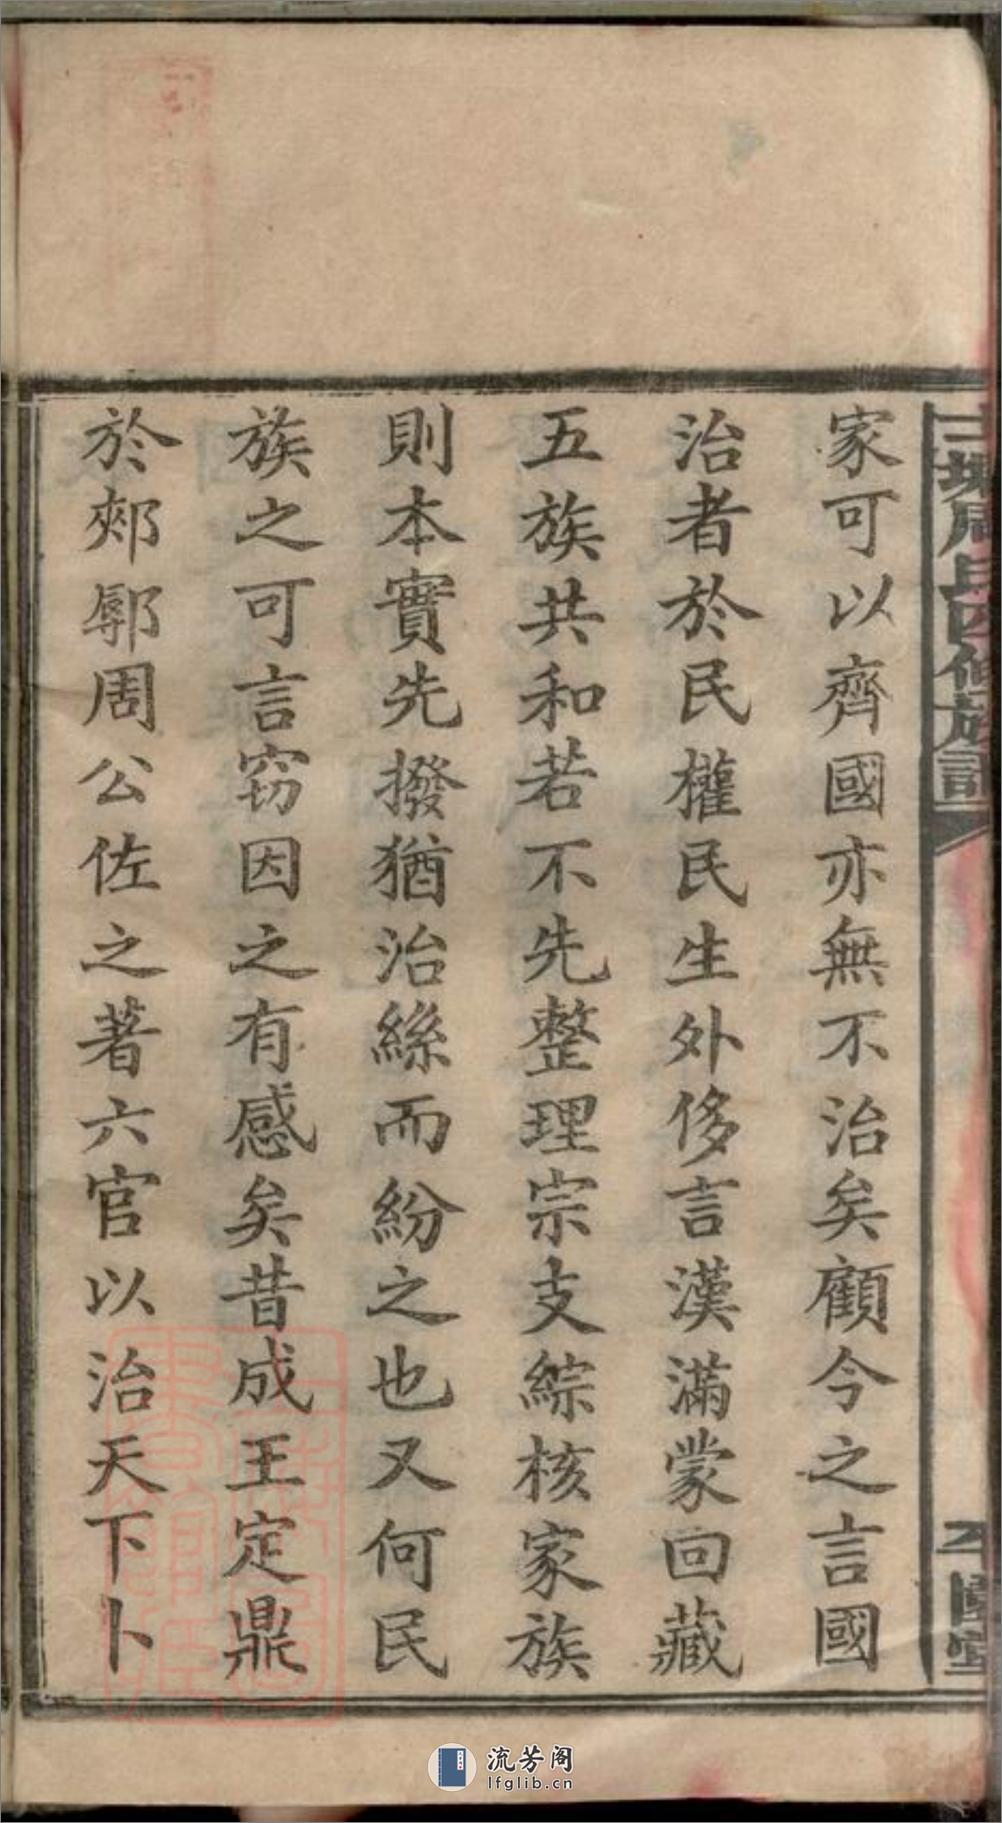 家可以齊國亦無不治矣顧今之言國
治者於民權民生外侈言漢滿蒙回藏
五族共和若不先整理宗支綜核家族
則本實先撥猶治絲而紛之也又何民
族之可言窃因之有感矣昔成王定鼎
於郟鄏周公佐之著六官以治天下卜
周氏四修族譜
流芳阁
lfglib.cn